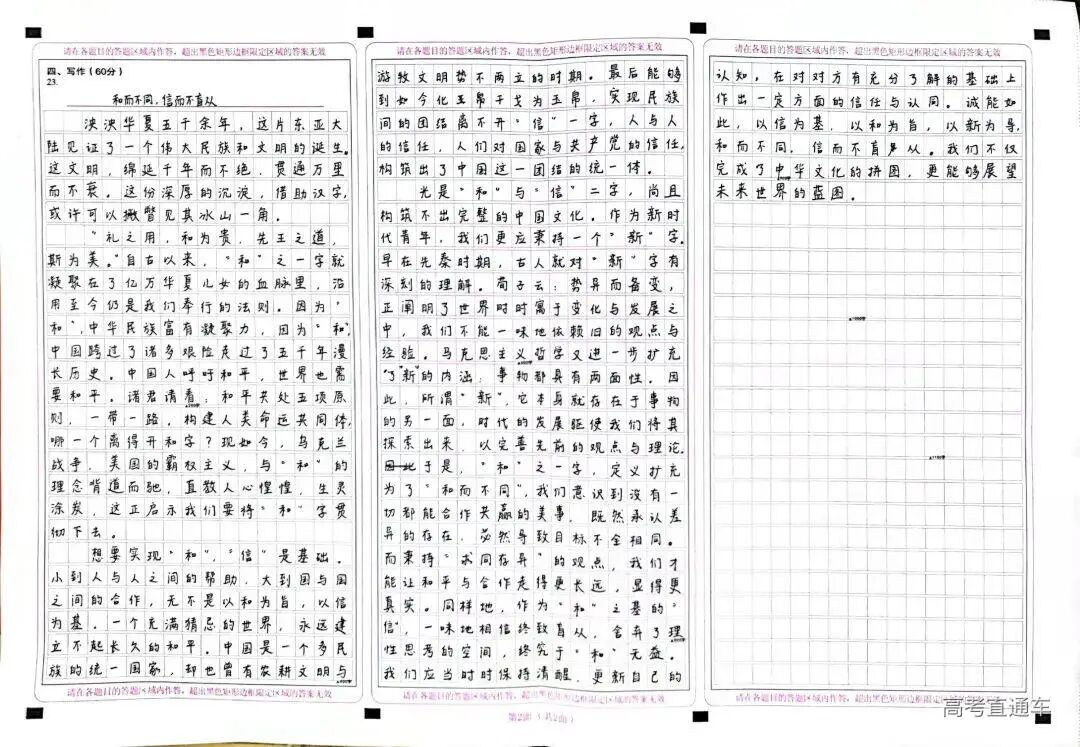 请在各题目的答题区域内作答，超出黑色矩形边框限定区域的答案无效
四、写作（60分）
23.
和而不同，信而不盲从
泱泱华夏五千余年，这片东亚大
陆见证了一个伟大民族和文明的诞生。
这文明，绵延千年而不绝，贯通万里
而不衰。这份深厚的沉淀，借助汉字，
或许可以撇瞥见其冰山一角。
“礼之用，和为贵，先王之道，
斯为美。”自古以来，“和”之一字就
凝聚在了亿万华夏儿女的血脉里，沿
用至今仍是我们奉行的法则。因为“
和”，中华民族富有凝聚力，因为“和”，
中国跨过了诸多艰险走过了五千年漫
长历史。中国人呼吁和平，世界也需
要和平。诸君请看：和平共处五项原
则，一带一路，构建人类命运共同体，
哪一个离得开和字？现如今，乌克兰
战争，美国的霸权主义，与“和”的
理念背道而驰，直教人心惶惶，生灵
涂炭，这正启示我们要将“和”字贯
彻下去。
想要实现“和”，“信”是基础。
小到人与人之间的帮助，大到国与国
之间的合作，无不是以和为旨，以信
为基。一个充满猜忌的世界，永远建
立不起长久的和平。中国是一个多民
族的统一国家，却也曾有农耕文明与
请在各题目的答题区域内作答，超出黑色矩形边框限定区域的答案无效
请在各题目的答题区域内作答，超出黑色矩形边框限定区域的答案无效
游牧文明势不两立的时期。最后能够
到如今化玉帛干戈为玉帛，实现民族
间的团结离不开“信”一字，人与人
的信任，人们对国家与共产党的信任，
构筑出了中国这一团结的统一体。
光是“和”与“信”二字，尚且
构筑不出完整的中国文化。作为新时
代青年，我们更应秉持一个“新”字。
早在先秦时期，古人就对“新”字有
深刻的理解。荀子云：势异而备变，
正阐明了世界时时寓于变化与发展之
中，我们不能一味地依赖旧的观点与
经验。马克思主义哲学又进一步扩充
了“新”的内涵：事物都具有两面性。因
此，所谓“新”，它本身就存在于事物
的另一面，时代的发展驱使我们将其
探索出来，以完善先前的观点与理论。
因此于是，“和”之一字，定义扩充
为了“和而不同”，我们意识到没有一
切都能合作共赢的美事，既然承认差
异的存在，必然导致目标不全相同。
而秉持“求同存异”的观点，我们才
能让和平与合作走得更长远，显得更
真实。同样地，作为“和”之基的“
信”，一味地相信终致盲从，舍弃了理
性思考的空间，终究于“和”无益。
我们应当时时保持清醒，更新自己的
请在各题目的答题区域内作答，超出黑色矩形边框限定区域的答案无效
第2面（共2面）
请在各题目的答题区域内作答，超出黑色矩形边框限定区域的答案无效
认知，在对对方有充分了解的基础上
作出一定方面的信任与认同。诚能如
此，以信为基，以和为旨，以新为导，
和而不同，信而不盲声从。我们不仅
完成了中华文化的拼图，更能够展望
未来世界的蓝图。
请在各题目的答题区域内作答，超出黑色矩形边框限定区域的答案无效
高考直通车